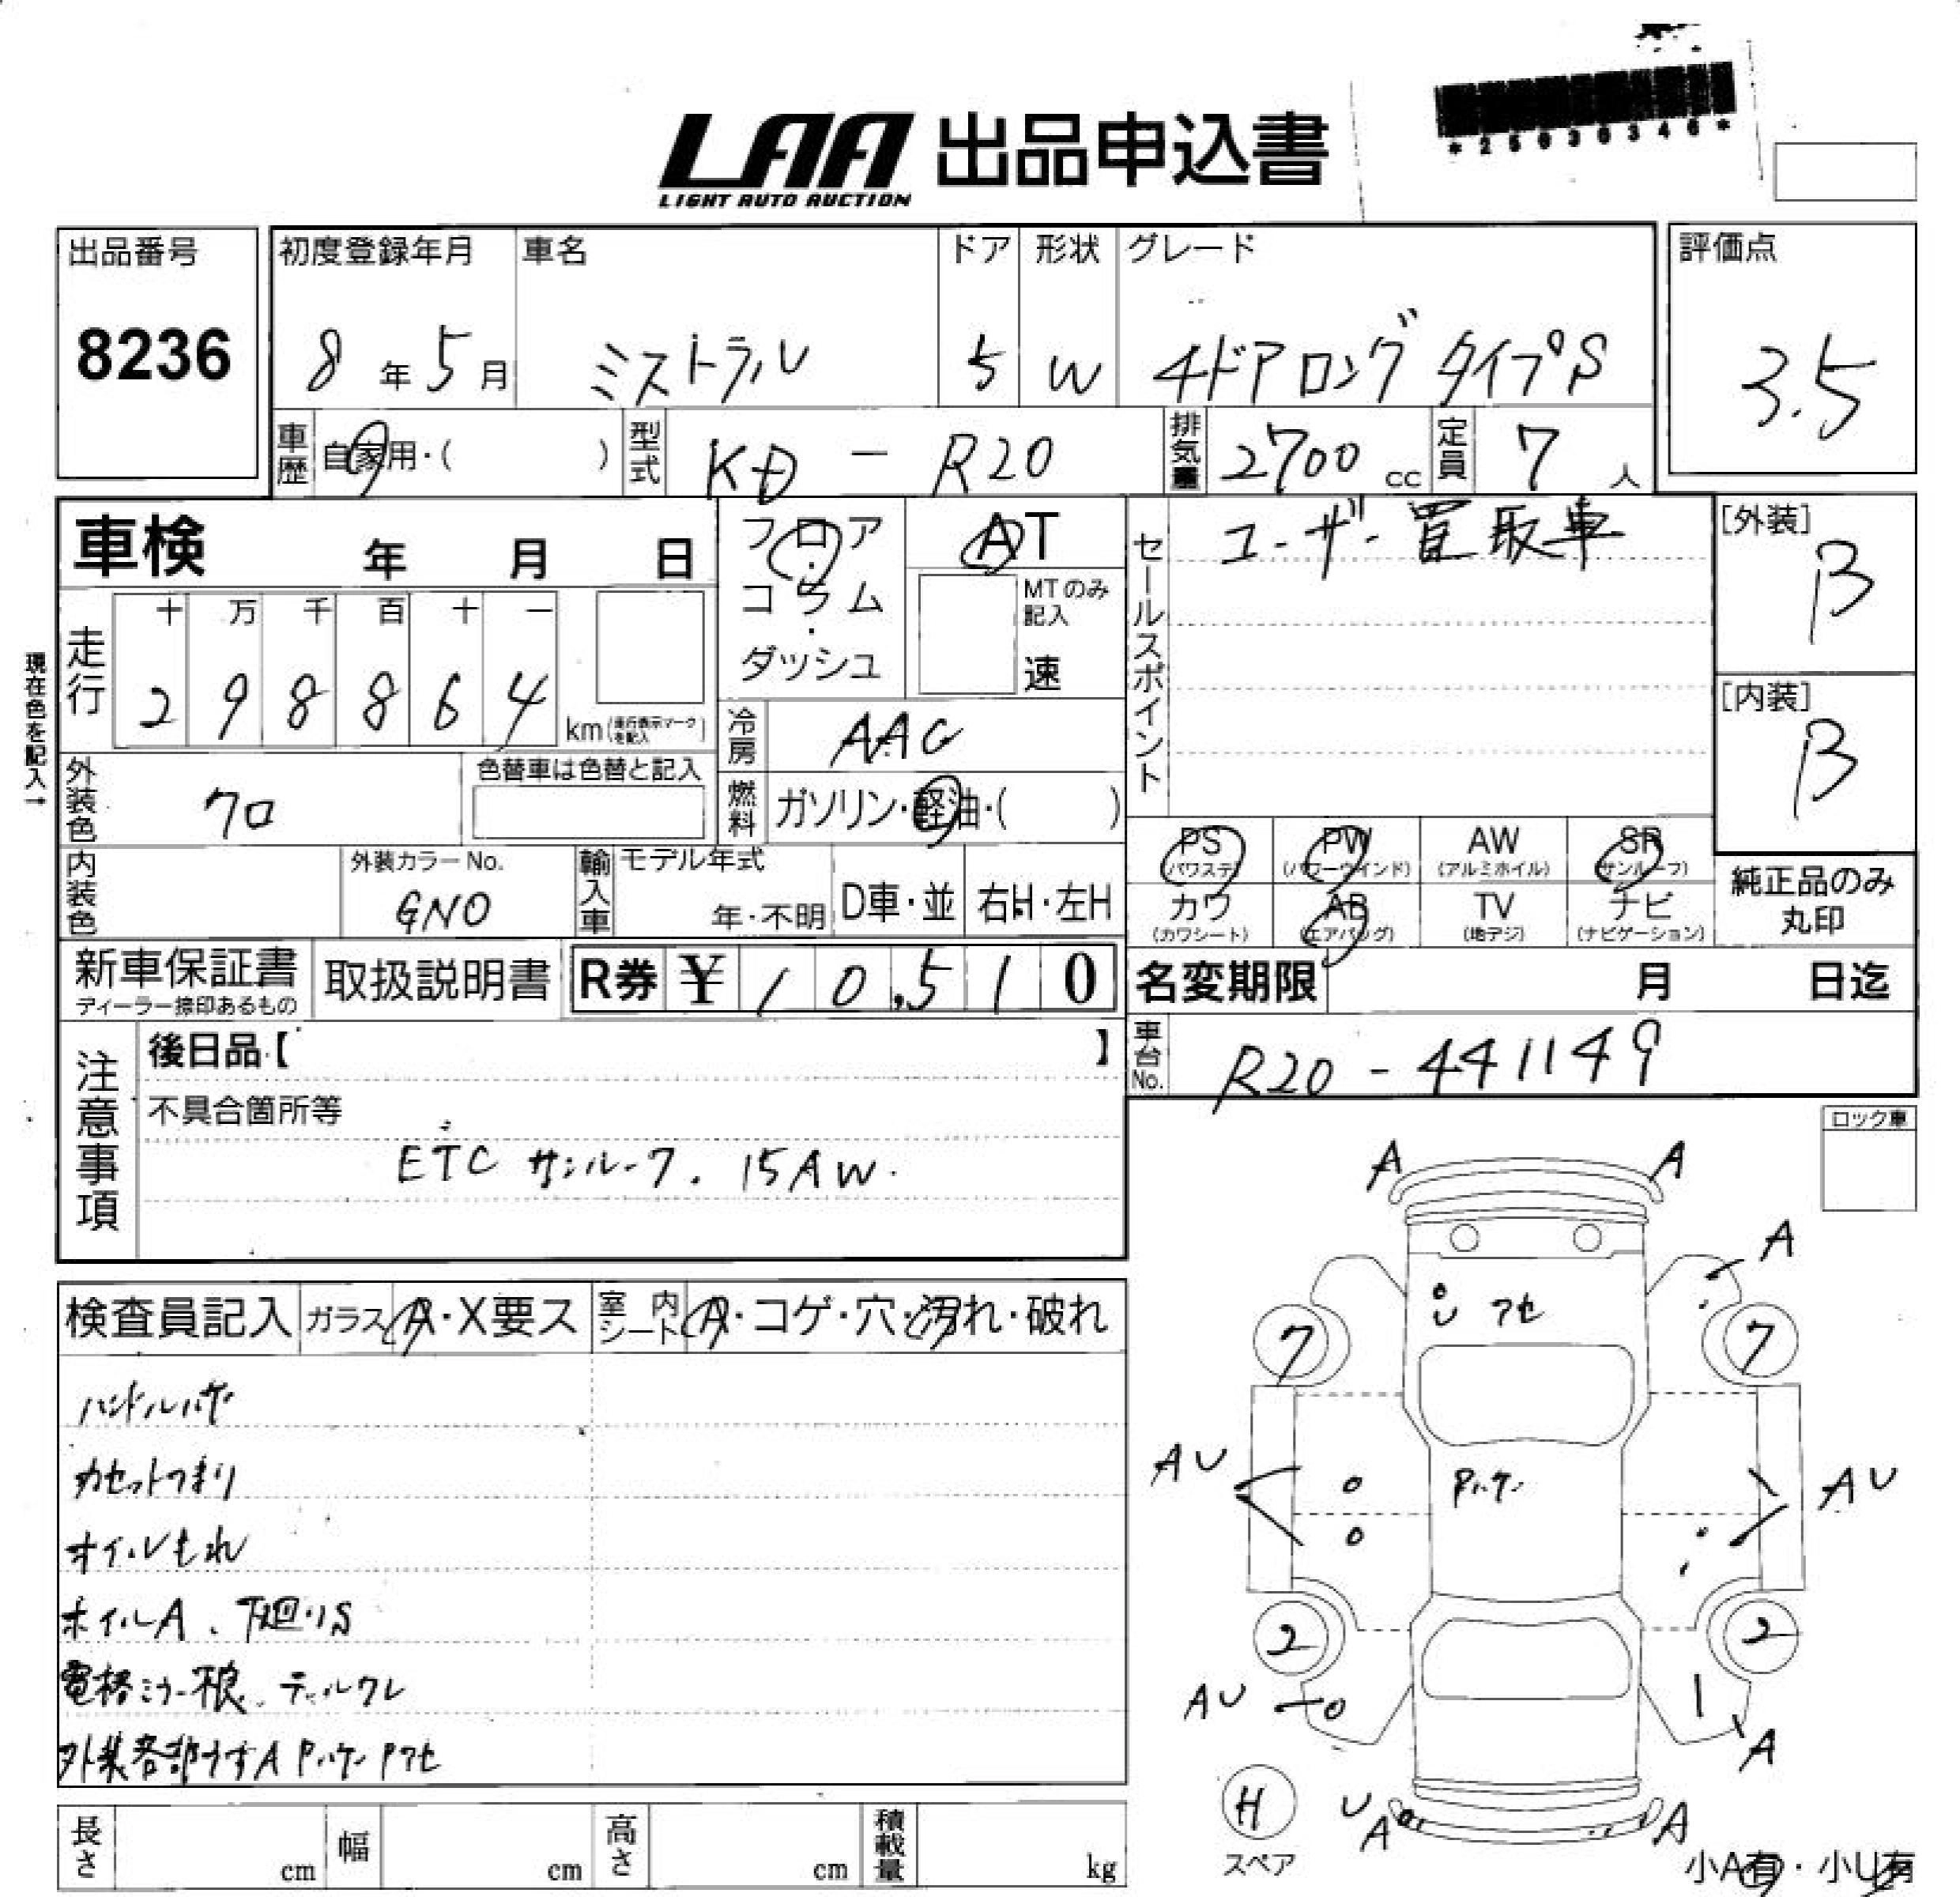 LAA 出品申込書
LIGHT AUTO AUCTION
*25030346*
出品番号 初度登録年月 車名 ドア 形状 グレード 評価点
8236 8年5月 ミストラル 5 W 4ドアロング タイプS 3.5
車歴 自家用・( ) 型式 KD - R20 排気量 2700cc 定員 7人
車検 年 月 日 フロア・コラム・ダッシュ AT セールスポイント ユーザー買取車 [外装] B
MTのみ記入 速
走行 十 万 千 百 十 一
2 9 8 8 6 4 km(走行表示マークを記入) [内装] B
現在色を記入→
冷房 AAC
外装色 クロ 色替車は色替と記入 燃料 ガソリン・軽油・( )
PS (パワステ) PW (パワーウインド) AW (アルミホイル) SR (サンルーフ)
内装色 外装カラーNo. GNO 輸入車 モデル年式 年・不明 D車・並 右H・左H
カワ (カワシート) AB (エアバッグ) TV (地デジ) ナビ (ナビゲーション) 純正品のみ丸印
新車保証書 ディーラー捺印あるもの 取扱説明書 R券 ¥10,510 名変期限 月 日迄
注意事項 後日品【 】 車台No. R20 - 441149
不具合箇所等 ロック車
ETC サンルーフ. 15AW.
検査員記入 ガラス A・X要ス 室内シート A・コゲ・穴・汚れ・破れ
ハンドルハゲ
カセットつまり
オイルもれ
ホイルA、下廻りS
電格ミラー不良、テールワレ
外装各部うすA Pハゲ Pアセ
A A
A
U アセ
7 7
AU Pハゲ AU
2 2
AU A
H スペア U A A
小A有・小U有
長さ cm 幅 cm 高さ cm 積載量 kg